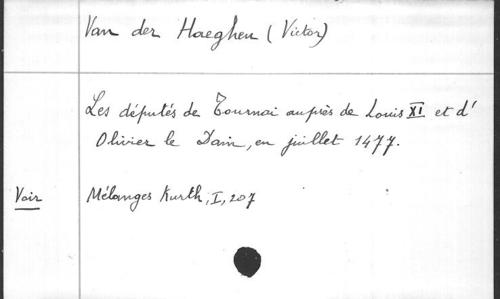 Van der Haeghen (Victor)
Les députés de Tournai auprès de Louis XI et d'
Olivier le Daim, en juillet 1477.
Voir Mélanges Kurth, I, 207